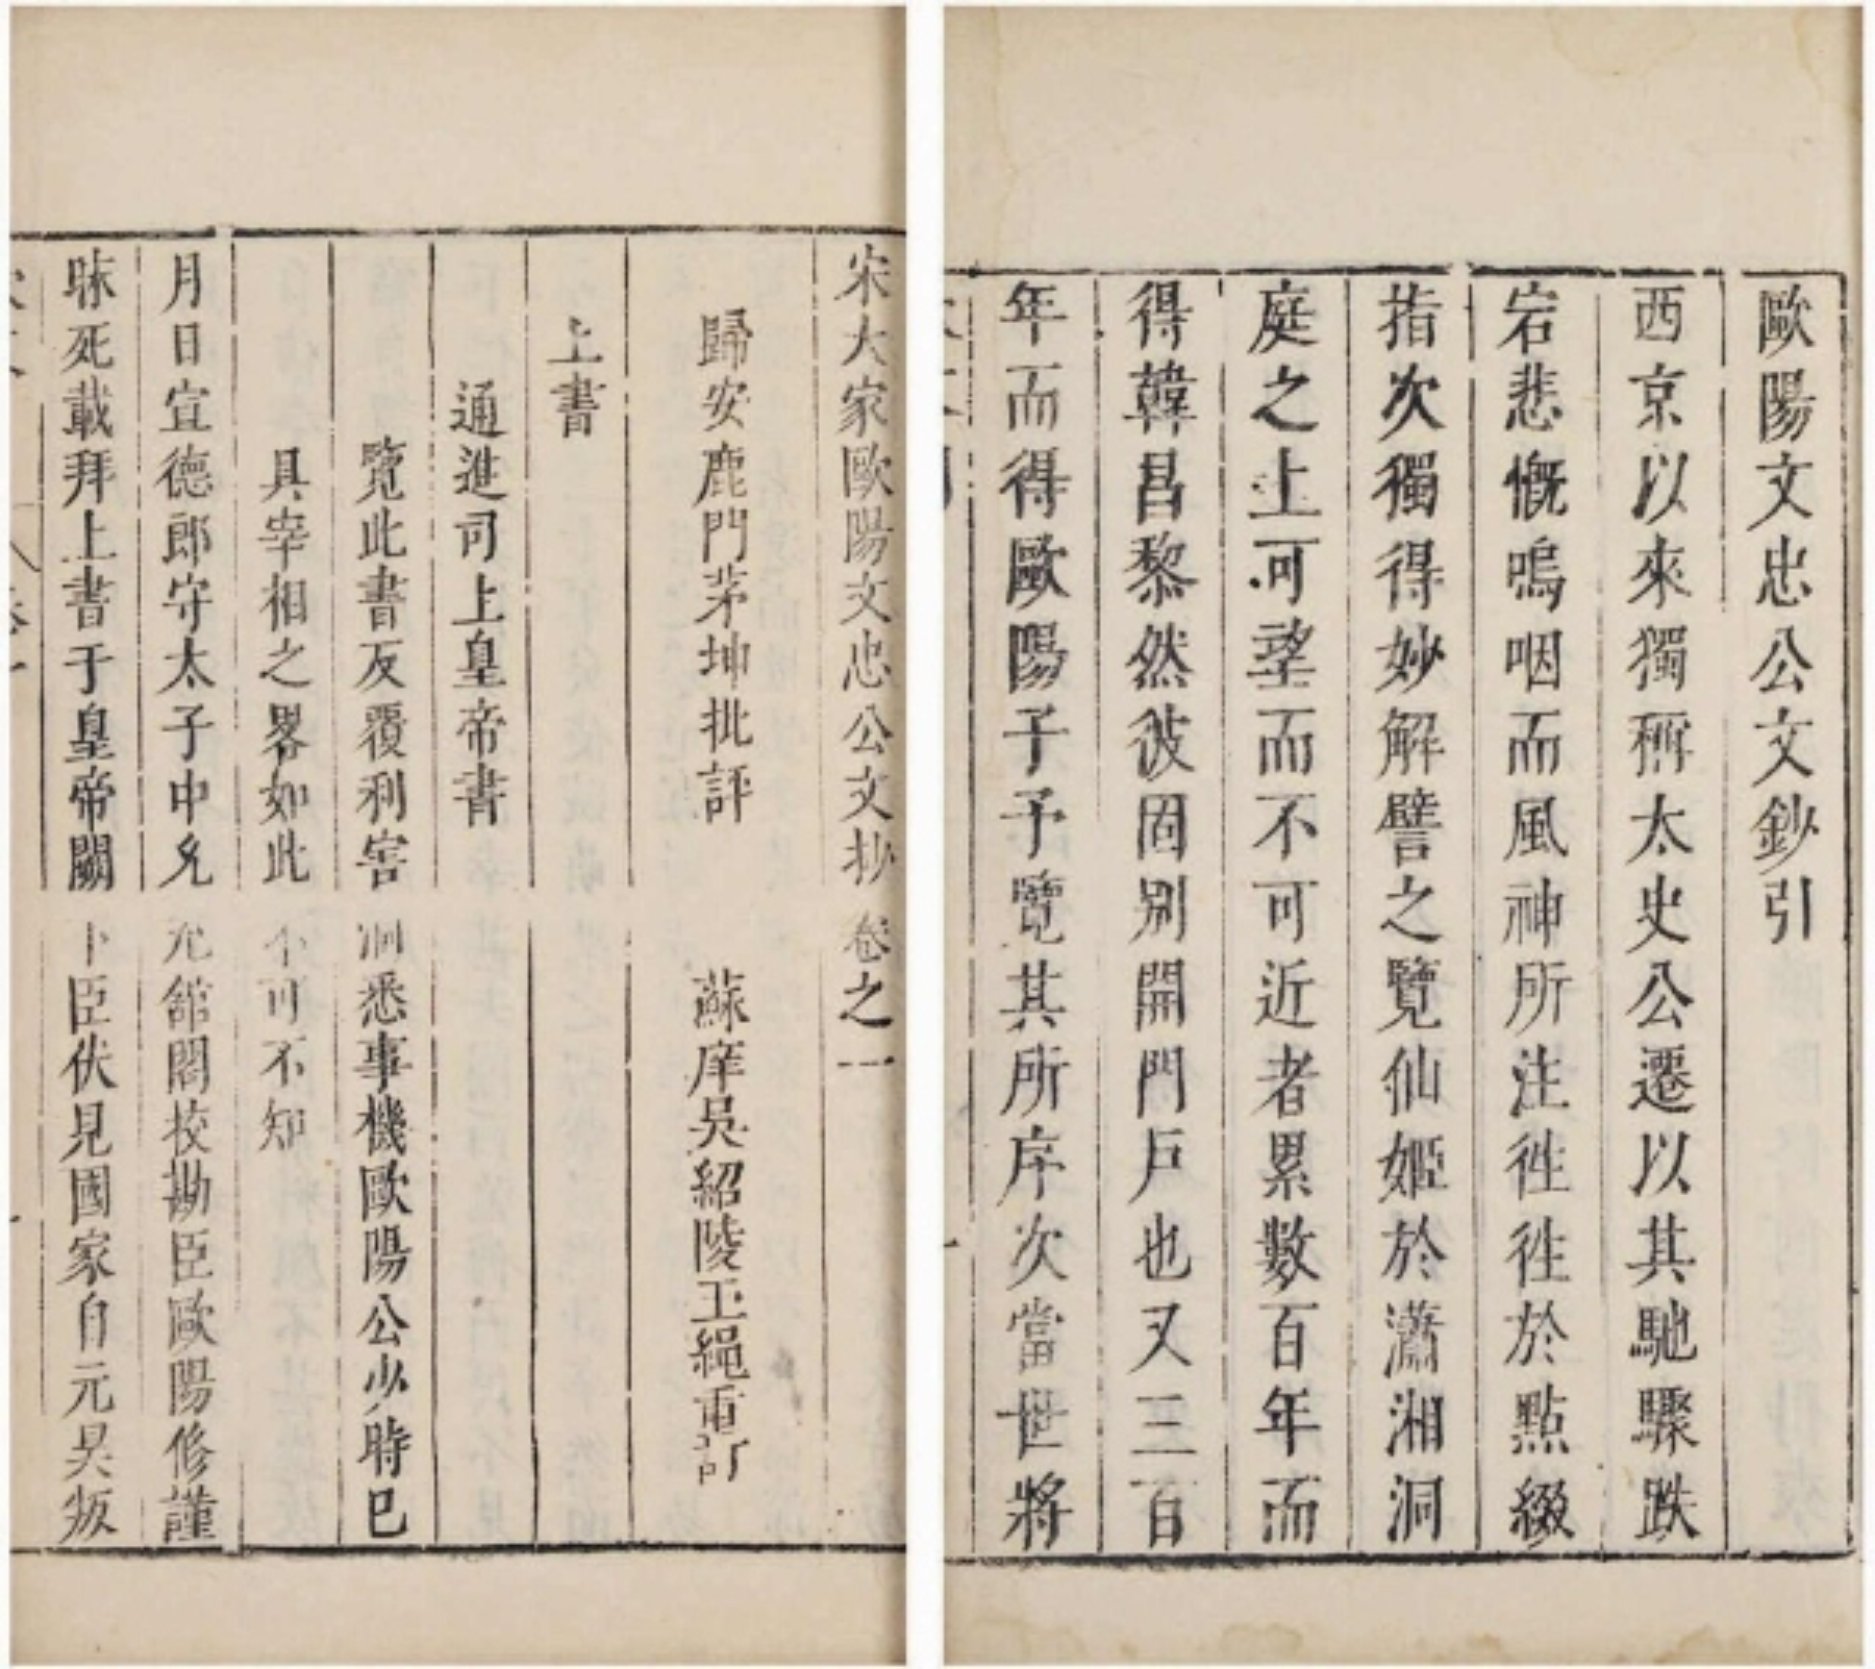 歐陽文忠公文鈔引
西京以來獨稱太史公遷以其馳驟跌
宕悲慨嗚咽而風神所注徃徃於點綴
指次獨得妙解譬之覽仙姬於瀟湘洞
庭之上可望而不可近者累數百年而
得韓昌黎然彼固别開門戸也又三百
年而得歐陽子予覽其所序次當世將
宋大家歐陽文忠公文抄卷之一
歸安鹿門茅坤批評 蘇庠吳紹陵玉繩重訂
上書
通進司上皇帝書
覽此書反覆利害洞悉事機歐陽公少時已
具宰相之畧如此不可不知
月日宣德郎守太子中允充舘閣校勘臣歐陽修謹
昧死載拜上書于皇帝闕下臣伏見國家自元昊叛